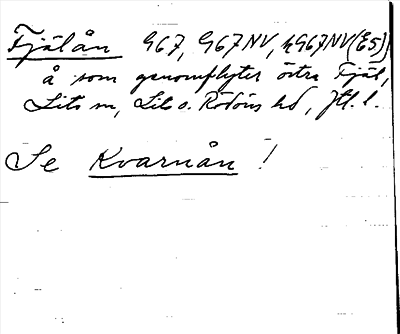 Fjälån G67, G67NV, hG67NV(E5)
å som genomflyter östra Fjäl,
Lits sn, Lits o. Rödöns hd, Jtl. l.
Se Kvarnån !